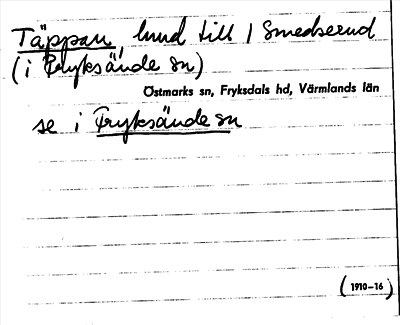 Täppan, hmd till 1 Smedserud
(i Fryksände sn)
Östmarks sn, Fryksdals hd, Värmlands län
se i Fryksände sn
(1910-16)